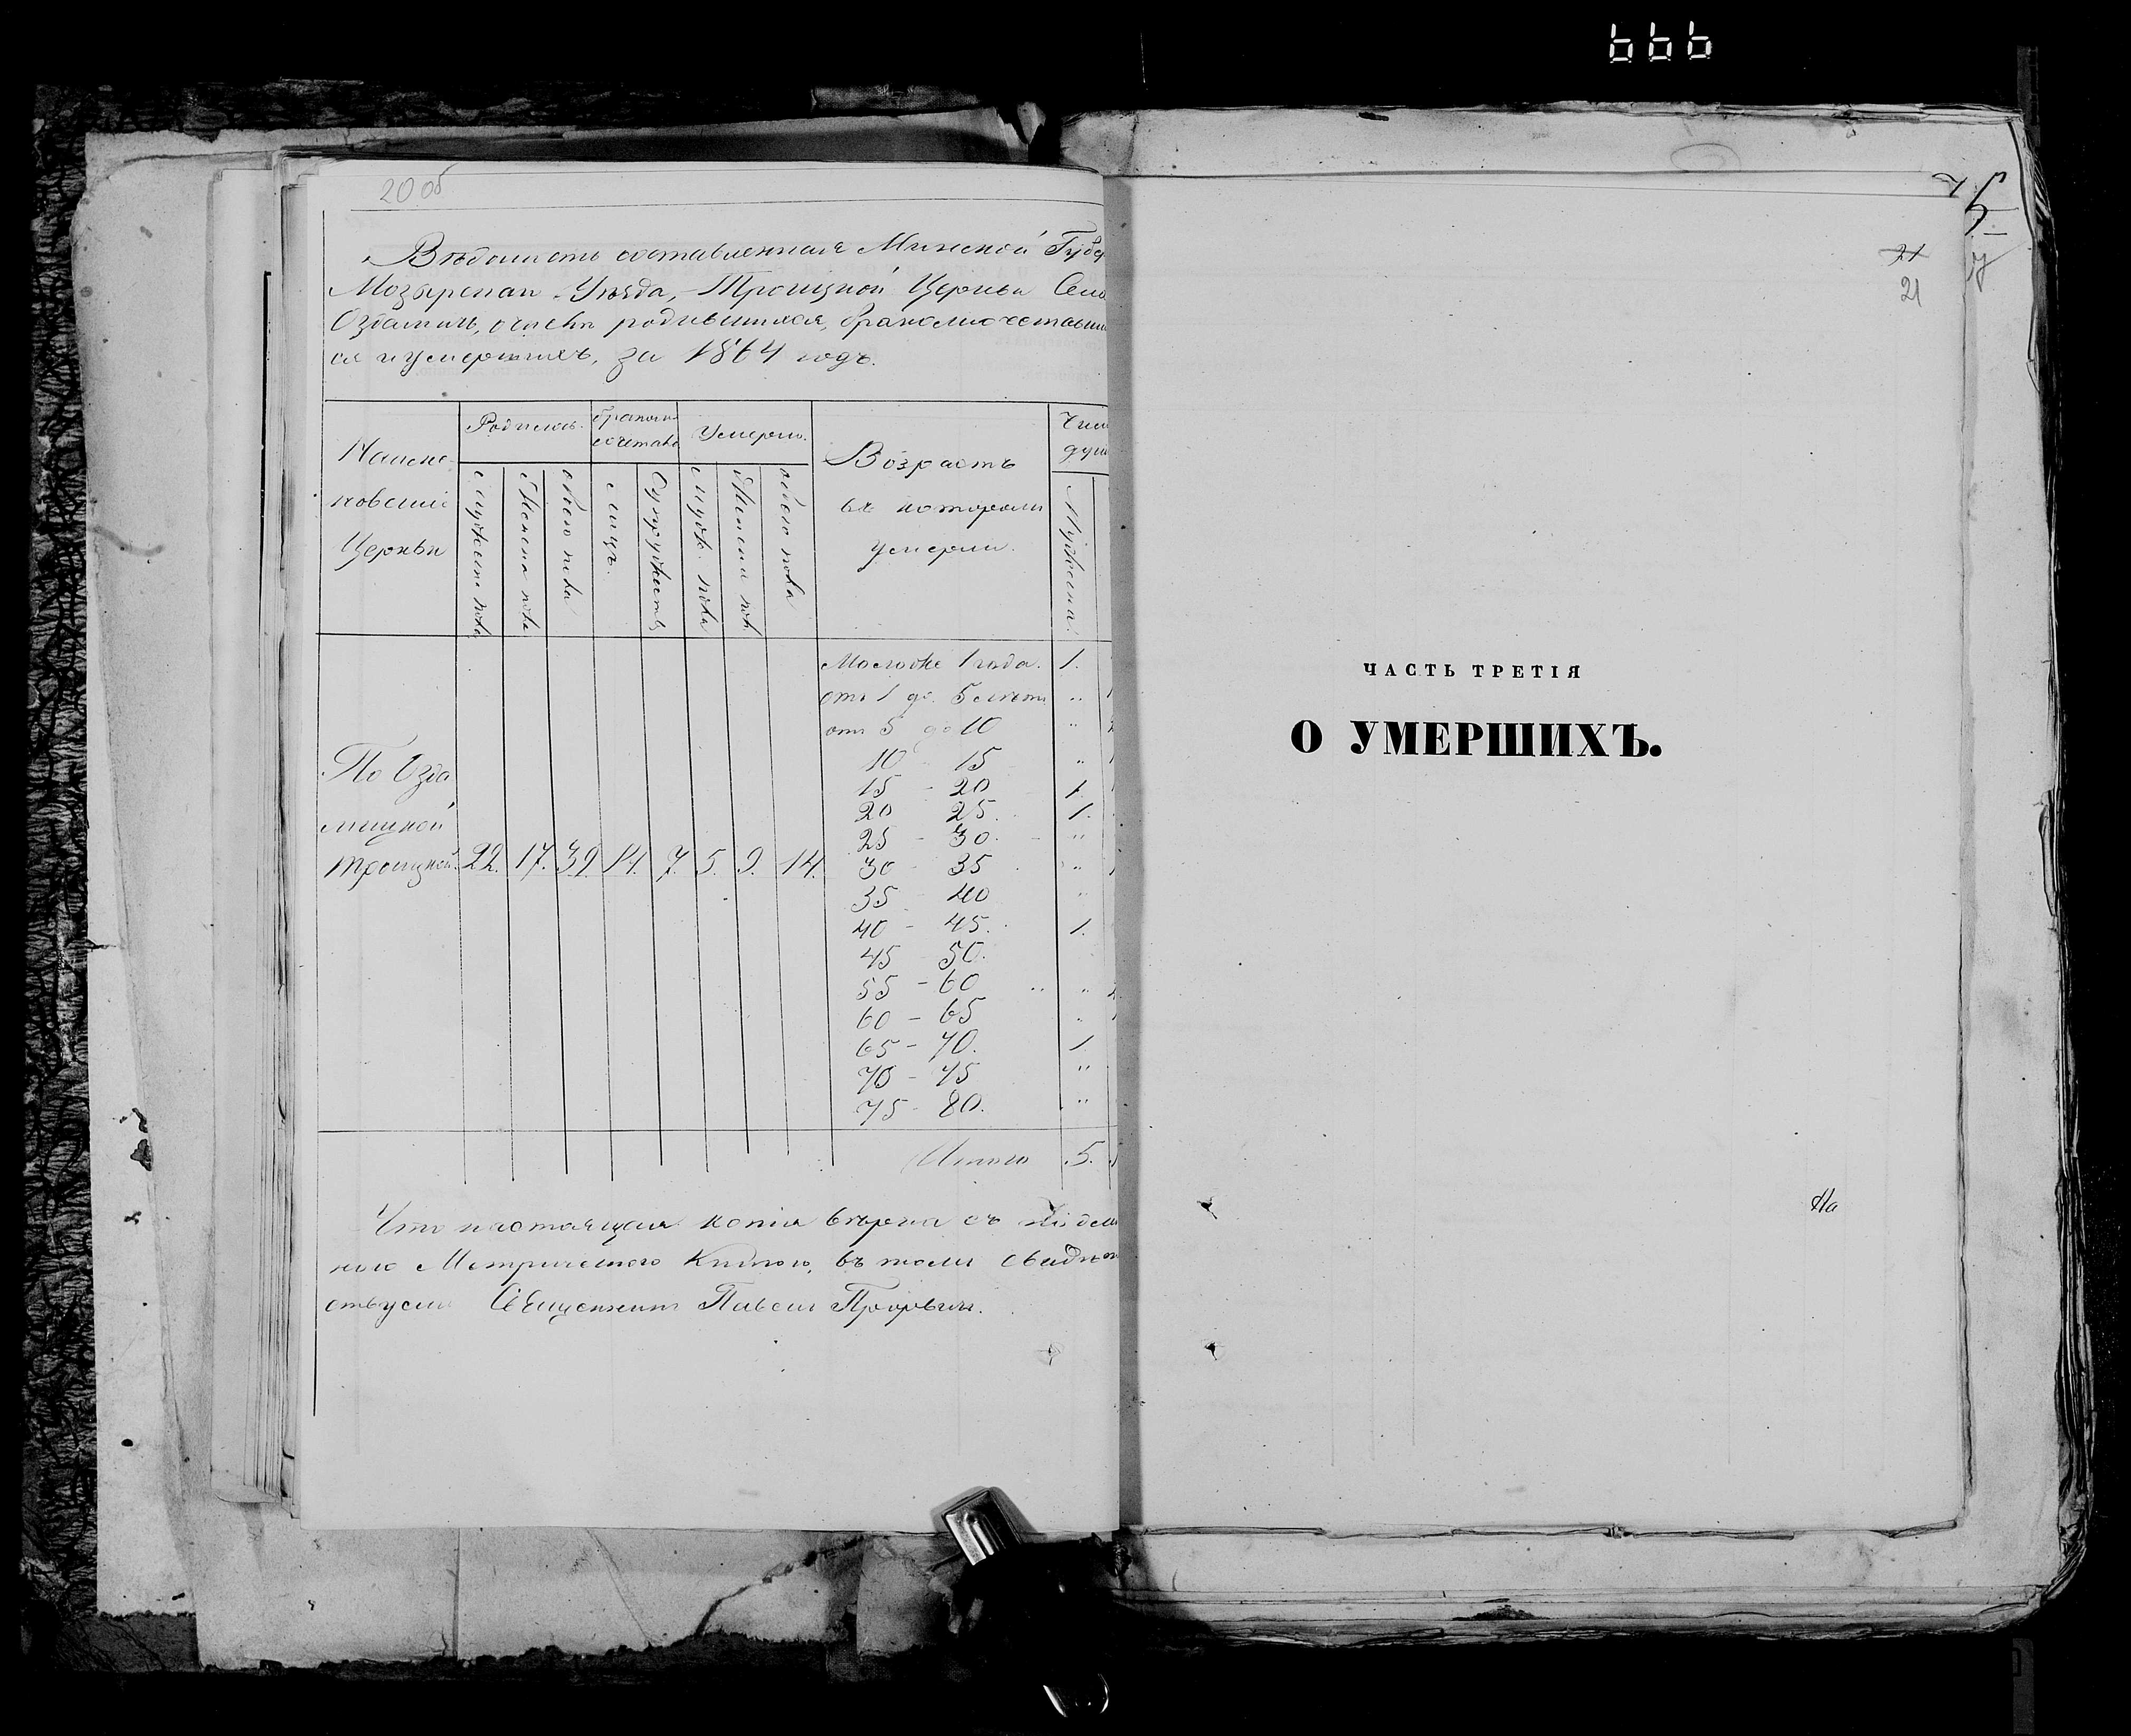 20 об
Вѣдомость составленная Минской Губер
Мозырскаго Уѣзда, Троицкой Церкви Села
Оздамичъ, о числѣ родившихся, бракосочетавши
ся и умершихъ, за 1864 годъ.
Наиме-
нованiе
Церкви
Родилось.
бракосо-
четав
Умерло.
Возрастъ
въ которомъ
умерли.
Число
душ
Мужеска пола
Женска пола
обоего пола
лицъ.
Супружествъ
Мужск. пола
Женска пол.
обоего пола
Мужеска.
Моложе 1 года. 1.
отъ 1 до 5 лѣтъ "
отъ 5 до 10 "
10 - 15 "
15 - 20 1.
20 25. 1.
25 - 30. "
30 - 35 "
35 - 40 "
40 - 45. 1.
45 50.
55 - 60 "
60 - 65 "
65 - 70. 1.
70 - 75 "
75 - 80. "
По Озда
мицкой
Троицкой. 22. 17. 39. 14. 7. 5. 9. 14.
Итого 5.
Что настоящая копiя вѣрна съ
Метрического Книгою, въ томъ свидѣт
ствуемъ Священникъ Павелъ
666
21
21
ЧАСТЬ ТРЕТIЯ
О УМЕРШИХЪ.
На